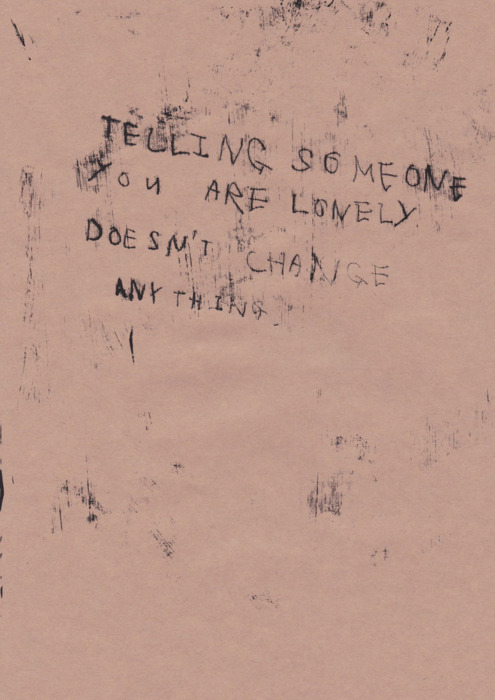 TELLING SOMEONE
YOU ARE LONELY
DOESN'T CHANGE
ANYTHING